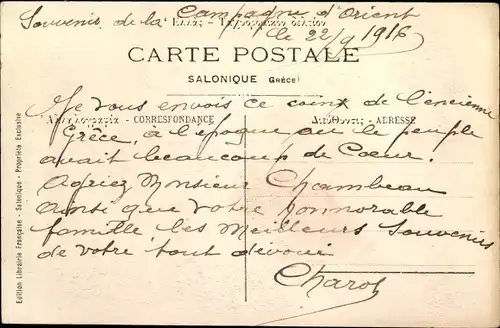 Souvenir de la Campagne d'Orient
le 22/9 1916
CARTE POSTALE
SALONIQUE (GRÈCE)
Je vous envois ce coin de l'encienne
CORRESPONDANCE
ADRESSE
Grèce, à l'epoque ou le peuple
avait beaucoup de Cœur.
Agriez Monsieur Chambeau
Ainsi que votre honnorable
famille les Meilleurs Souvenirs
de votre tout dévoué
Charol
Edition Librairie Française - Salonique - Propriété Exclusive